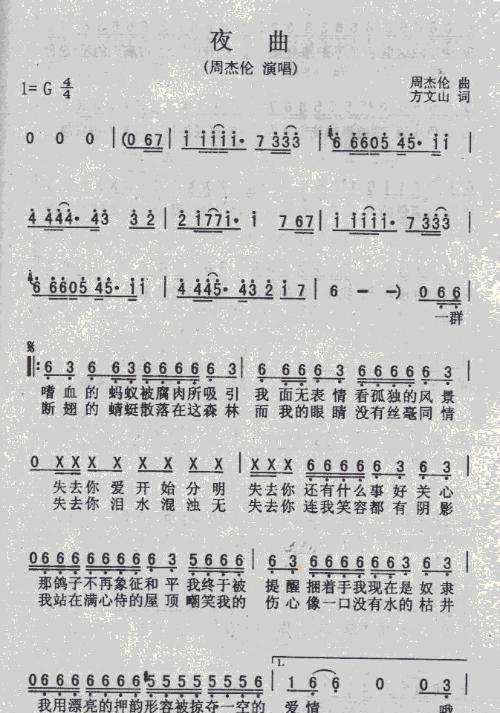 夜 曲
(周杰伦 演唱)
1= G 4/4
周杰伦 曲
方文山 词
0 0 0 | (0 67 | i i i i i· 7 3 3 3 | 6 6605 45· i i |
4 444· 43 3 2 | 2 i 7 7 i· i 7 67 | i i i i i· 7 3 3 3 |
6 6605 45· i i | 4 445· 43 2 i 7 | 6 - -) 0 6 6 |
一群
6 3 6 6 3 6 6 6 6 6 3 | 6 6 6 6 6 6 6 6 6 6 3 |
嗜血的 蚂蚁被腐肉所吸引 我 面无表 情 看孤独的风 景
断翅的 蜻蜓散落在这森林 而我的眼 睛 没有丝毫同 情
0 X X X X X X X | X X X 6 6 6 6 6 3 6 3 |
失去你 爱开始分明 失去你 还有什么事好关心
失去你 泪水混浊无 失去你 连我笑容都有阴影
0666 6666 6 3 5666 | 6 6 6666 6663 6 3 |
那鸽子不再象征和平 我终于被 提醒 捆着手我现在是 奴隶
我站在满心侍的屋顶 嘲笑我的 伤心 像一口没有水的 枯井
0666 6666 5555 5556 | 1. 1 6 0 0 3 |
我用漂亮的押韵形容被掠夺一空的 爱情 哦